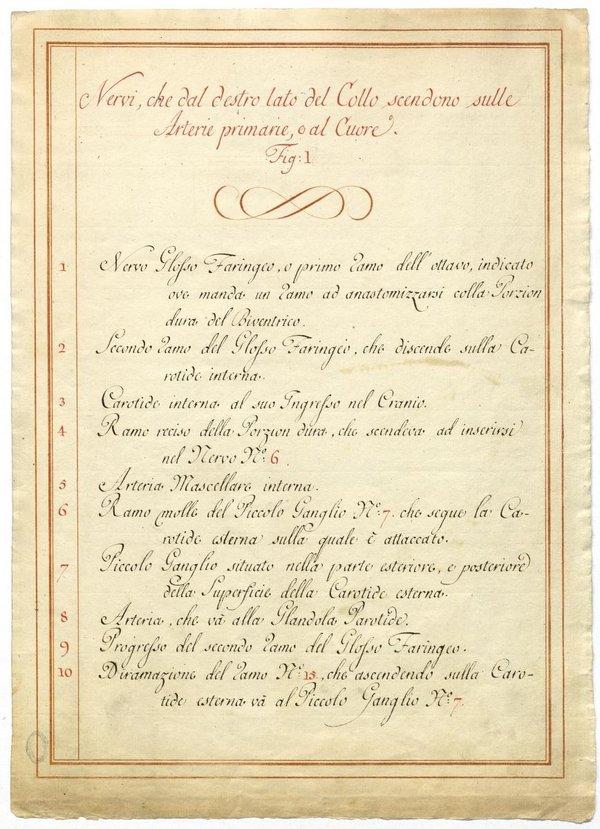 Nervi, che dal destro lato del Collo scendono sulle
Arterie primarie, o al Cuore.
Fig: 1
1 Nervo Glosso Faringeo, o primo Ramo dell' ottavo, indicato
ove manda un Ramo ad anastomizzarsi colla Porzion
dura del Biventrico.
2 Secondo Ramo del Glosso Faringeo, che discende sulla Ca-
rotide interna.
3 Carotide interna al suo Ingresso nel Cranio.
4 Ramo reciso della Porzion dura, che scendeva ad inserirsi
nel Nervo N.º 6
5 Arteria Mascellare interna.
6 Ramo molle del Piccolo Ganglio N.º 7. che segue la Ca-
rotide esterna sulla quale è attaccato.
7 Piccolo Ganglio situato nella parte esteriore, e posteriore
della Superficie della Carotide esterna.
8 Arteria, che và alla Glandola Parotide.
9 Progresso del secondo Ramo del Glosso Faringeo.
10 Diramazione del Ramo N.º 13, che ascendendo sulla Caro-
tide esterna và al Piccolo Ganglio N.º 7.